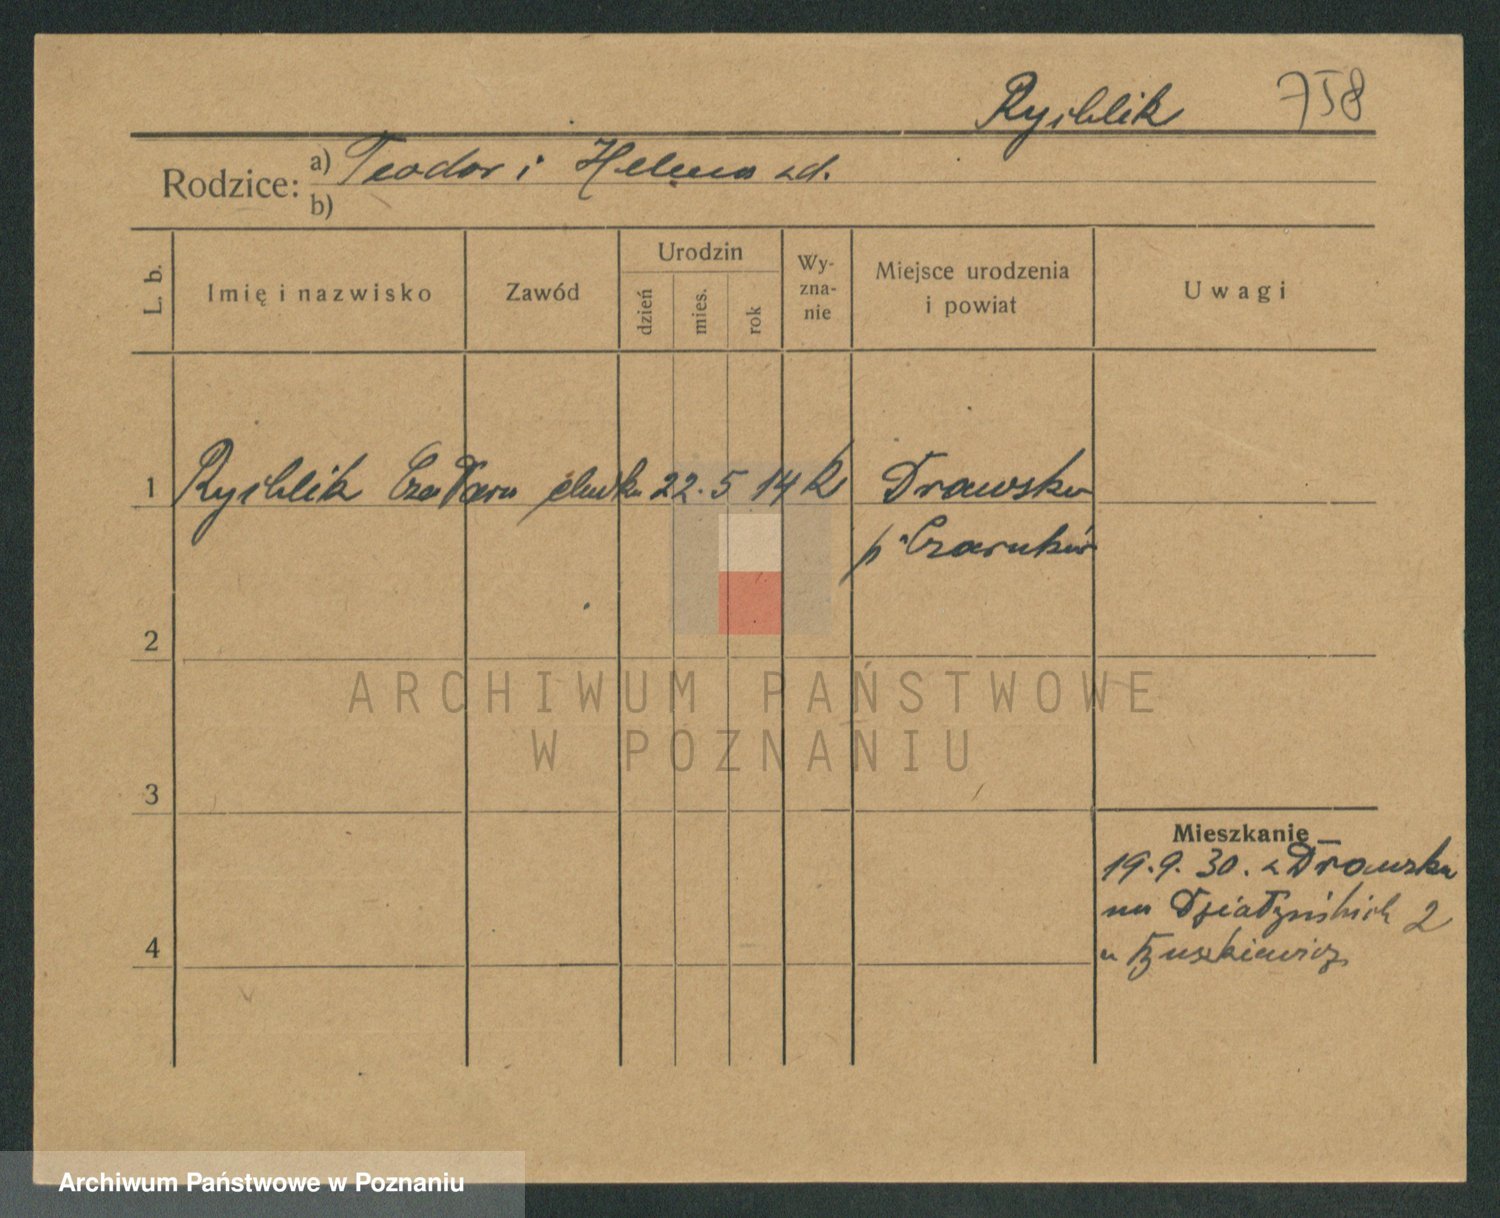 Rychlik 758
Rodzice: a) Teodor i Helena zd.
b)
L. b. Imię i nazwisko Zawód Urodzin dzień mies. rok Wy-zna-nie Miejsce urodzenia i powiat Uwagi
1 Rychlik 22. 5 14 k Drawsko
p. Czarnków
2
ARCHIWUM PAŃSTWOWE
W POZNANIU
3
Mieszkanie
19.9.30. z Drawska
na Działyńskich 2
4
u
Archiwum Państwowe w Poznaniu